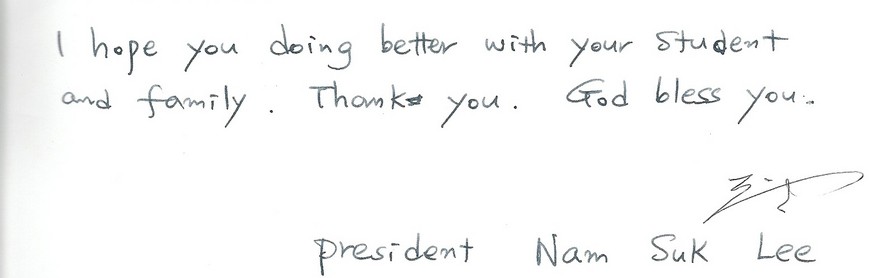 I hope you doing better with your student
and family. Thank you. God bless you.
president Nam Suk Lee